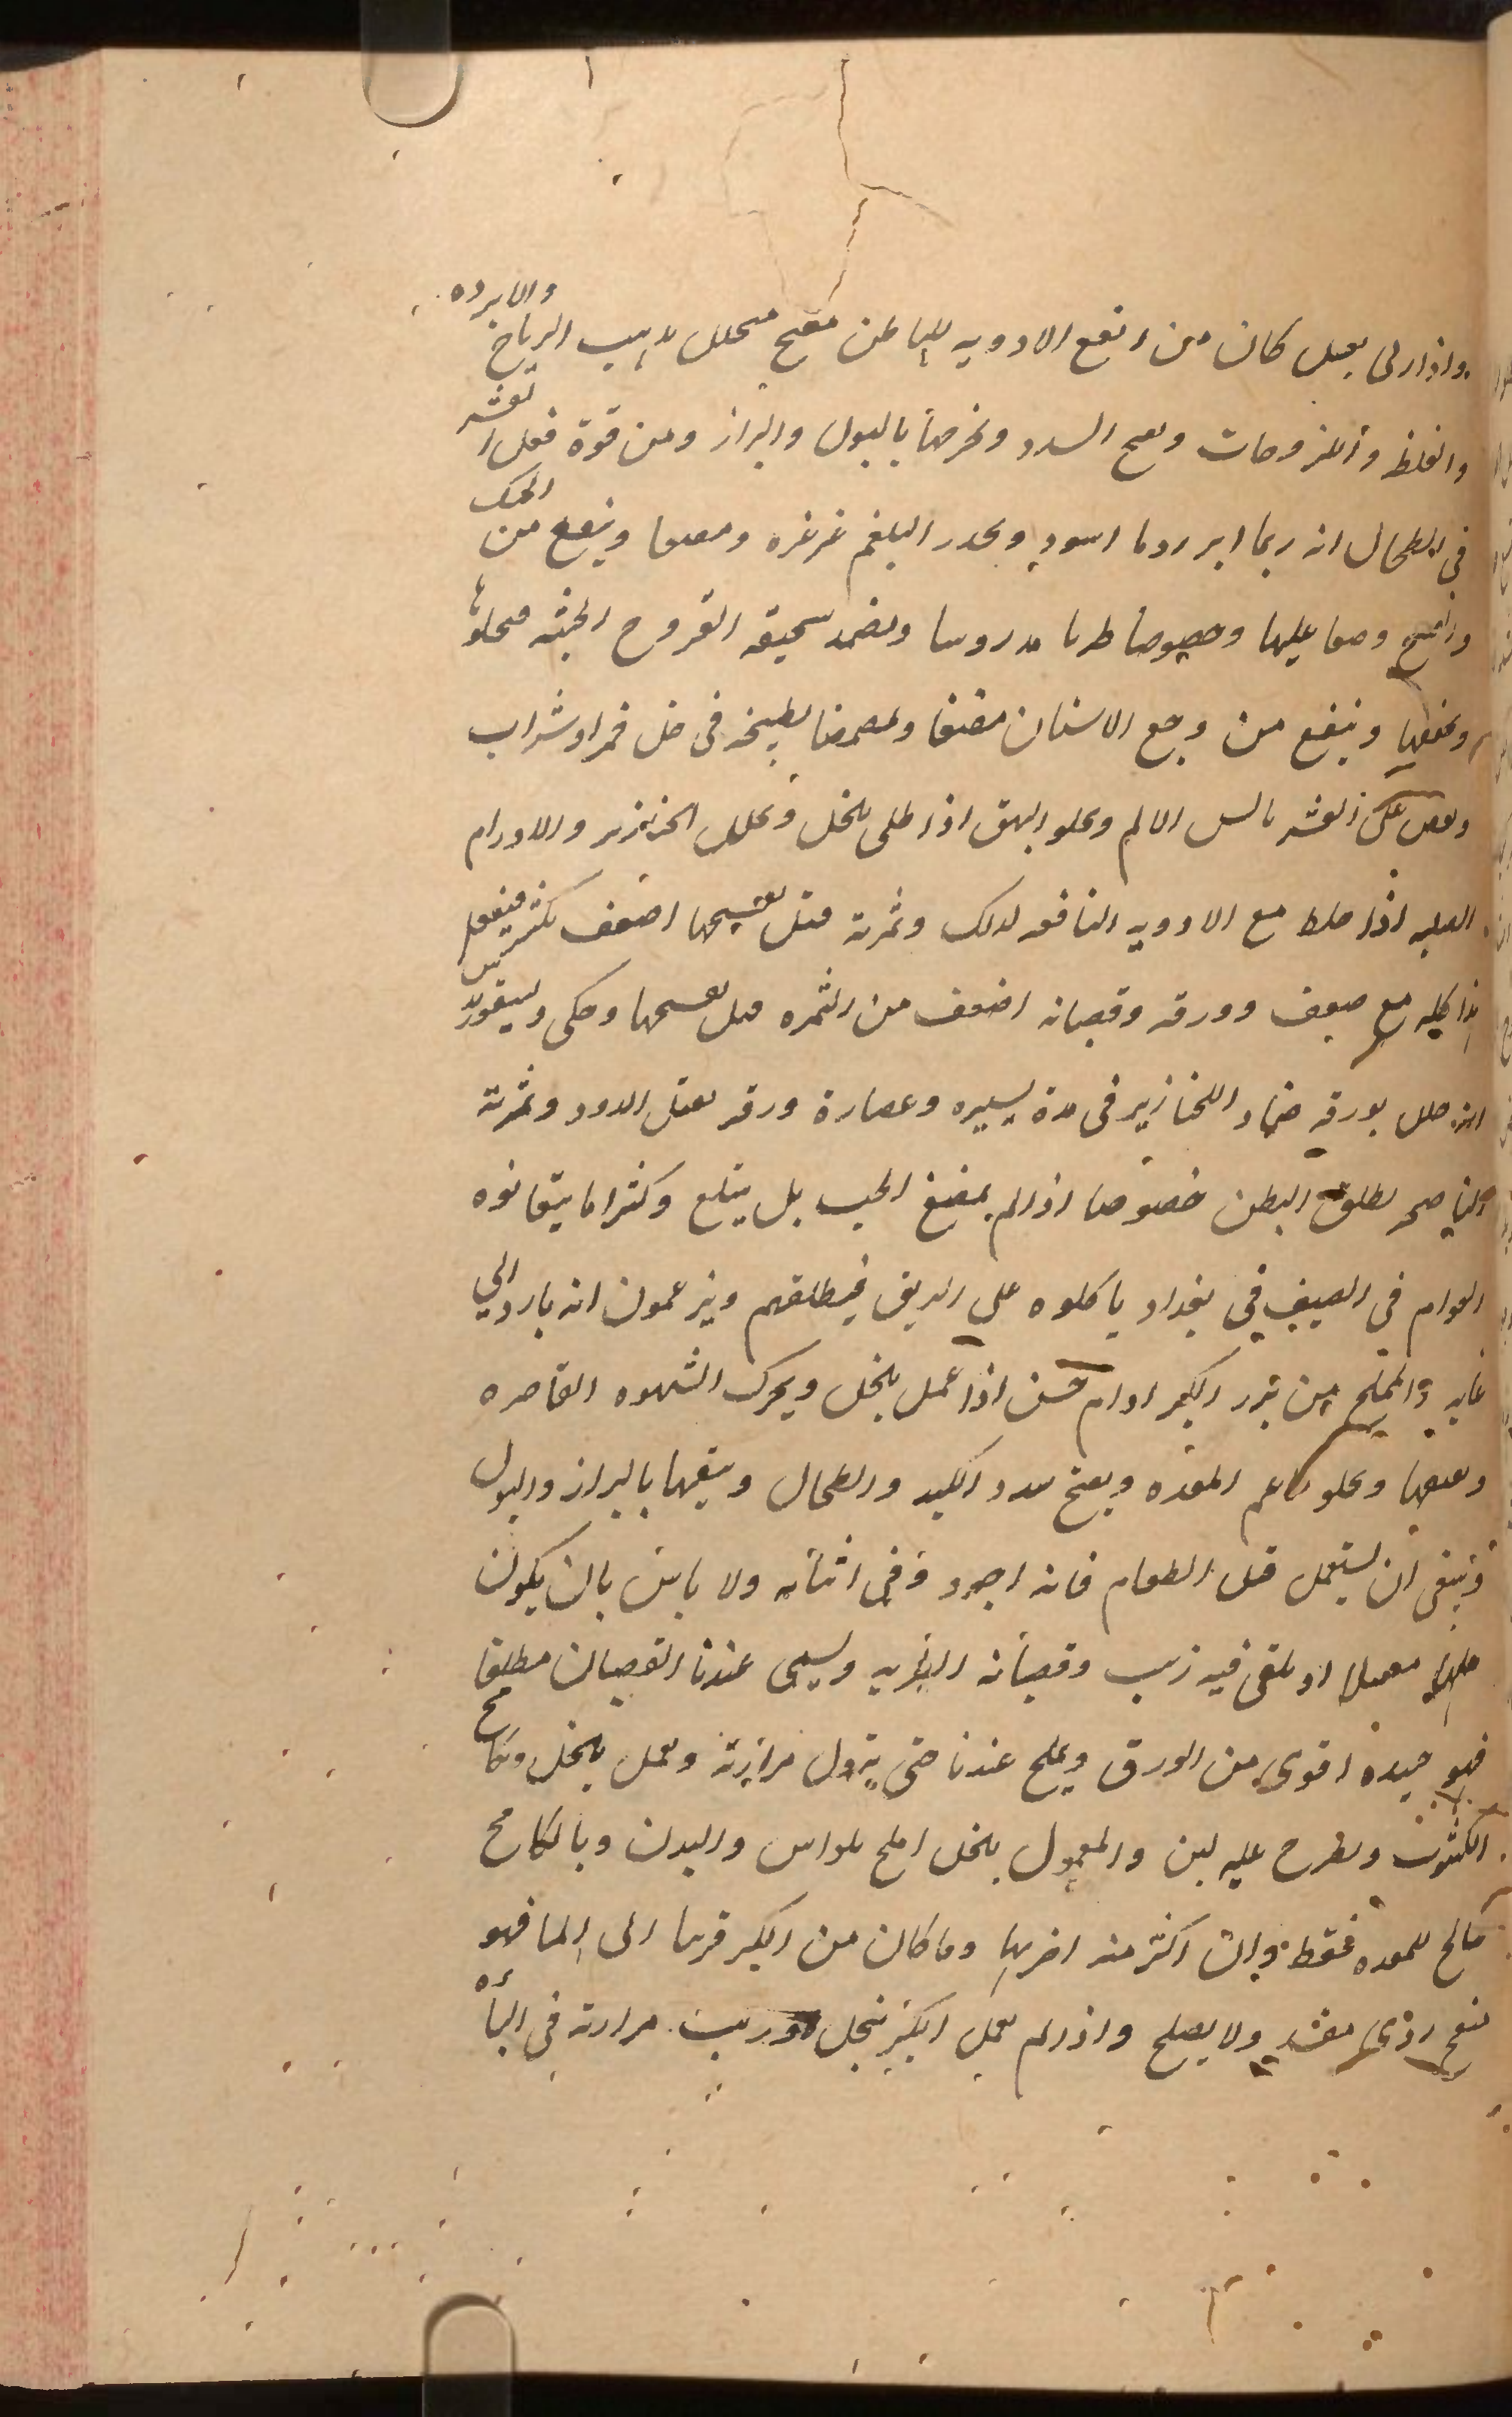 واذا ربى بعسل كان من انفع الادويه للباطن مفتح محلل مذيب الرياح والابرده
والغلظ واللزوجات وبفتح السدد ويخرجها بالبول والبراز ومن قوة فعل القشر
في الطحال انه ربما ابرز دما اسود ويحدر البلغم غرغره ومضغا وينفع من الحكه
عليها وخصوصا طريا مدروسا ويضمد بسحيقه القروح الخبيثه فيجلوها
ويجففها وينفع من وجع الاسنان مضغا وتمضمضا بطبيخه في خل خمر او شراب
وبعض على القشر بالسن الالم ويجلو البهق اذا طلى بالخل ويحلل الخنازير والاورام
الصلبه اذا خلط مع الادويه النافعه لذلك وثمرته قبل تفتيحها اضعف بكثير فيفعل
هذا كله مع ضعف وورقه وقضبانه اضعف من الثمره قبل تفتيحها وحكى ديسقوريدس
انه حلل بورقه ضمادا الخنازير في مدة يسيره وعصارة ورقه يقتل الدود وثمرته
الناضجه يطلق البطن خصوصا اذا لم يمضغ الحب بل يبتلع وكثيرا ما يتعانوه
العوام في الصيف في بغداد ياكلوه على الريق فيطلقهم ويزعمون انه بارد الى
غايه والمملح من بزر الكبر ادام حسن اذا عمل بالخل ويحرك الشهوه القاصره
ويجلو فم المعده ويفتح سدد الكبد والطحال وينقيها بالبراز والبول
وينبغى ان يستعمل قبل الطعام فانه اجود وفي اثنائه ولا باس بان يكون
او يلقى فيه زبيب وقضبانه البريه ويسمى عندنا القضبان مطلقا
فهو جيده اقوى من الورق ويملح عندنا حتى يزول مرارته ويعمل بالخل وكامخ
الكشوث ويطرح عليه لبن والمعمول بالخل املح للراس والبدن وبالكامخ
صالح للمعده فقط وان اكثر منه اضر بها وما كان من الكبر قريبا الى الما فهو
منفخ رزى مغشى ولا يصلح واذا لم يعمل الكبر بخل وربيت مرارته في الماء